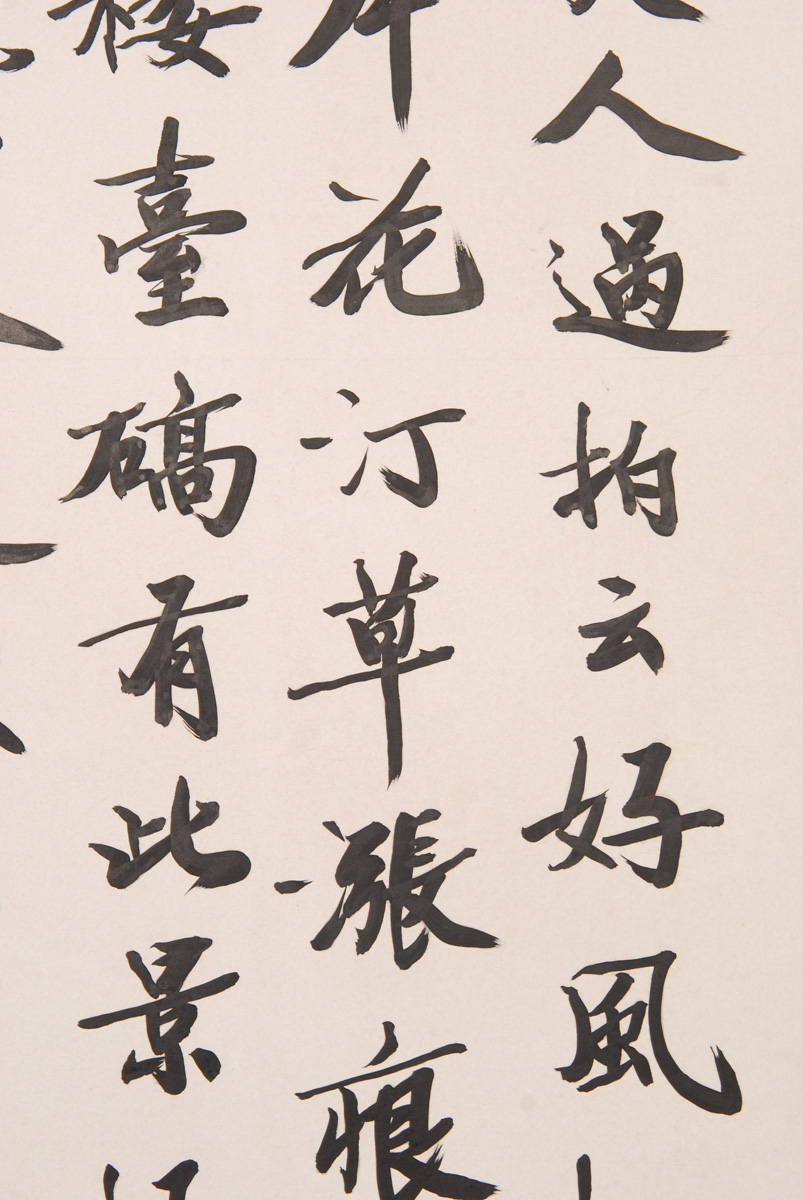 人過拍云好風
岸花汀草漲痕
樓臺碻有此景